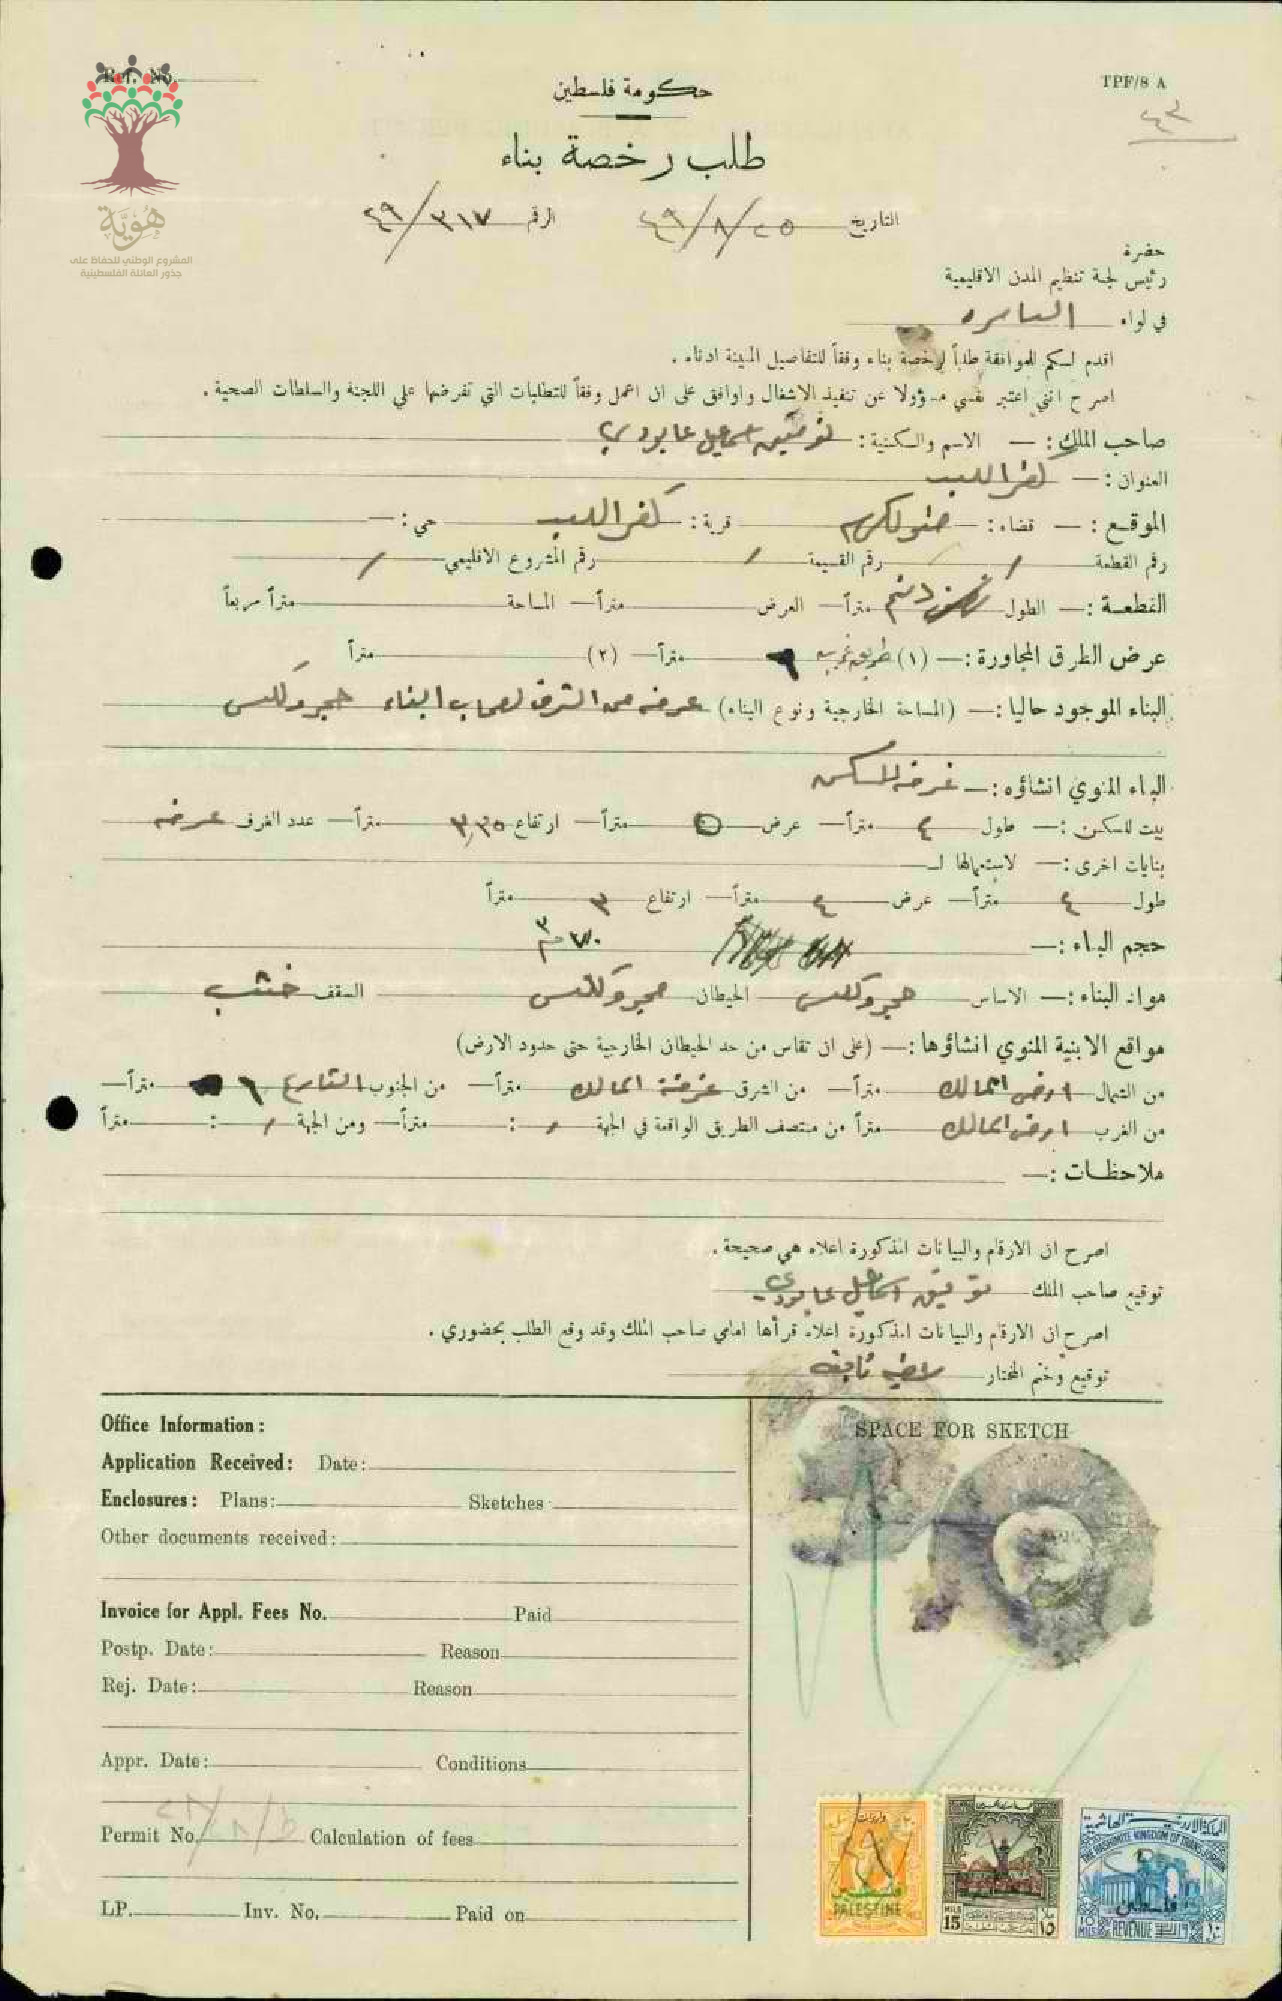 Ref. No.
TPF/8 A
٤٣
هُوِيَّة
المشروع الوطني للحفاظ على
جذور العائلة الفلسطينية
حكومة فلسطين
طلب رخصة بناء
التاريخ ٢٥/٨/٤٩ الرقم ٣١٧/٤٩
حضرة
رئيس لجنة تنظيم المدن الاقليمية
في لواء السامره
اقدم لكم للموافقة طلباً لرخصة بناء وفقاً للتفاصيل المبينة ادناه .
اصرح انني اعتبر نفسي مسؤولا عن تنفيذ الاشغال واوافق على ان اعمل وفقاً للتطلبات التي تفرضها علي اللجنة والسلطات الصحية .
صاحب الملك : — الاسم والكنية : توفيق اسماعيل عابودي
العنوان : — كفر اللبد
الموقع : — قضاء : طولكرم قرية : كفر اللبد حي : —
رقم القطعة / رقم القسيمة / رقم المشروع الاقليمي /
القطعة : — الطول دنم متراً — العرض متراً — المساحة متراً مربعاً
عرض الطرق المجاورة : — (١) طريق غربيه ٦ متراً — (٢) متراً
البناء الموجود حاليا : — (المساحة الخارجية ونوع البناء) غرفه من الشرق لصحاب البناء حجر وكلس
البناء المنوي انشاؤه : — غرفه للسكن
بيت للسكن : — طول ٤ متراً — عرض ٥ متراً — ارتفاع ٣,٣٥ متراً — عدد الغرف غرفه
بنايات اخرى : — لاستعمالها لـ
طول ٤ متراً — عرض ٤ متراً — ارتفاع ٣ متراً
حجم البناء : — ٧٠ م٣
مواد البناء : — الاساس حجر وكلس الحيطان حجر وكلس السقف خشب
مواقع الابنية المنوي انشاؤها : — (على ان تقاس من حد الحيطان الخارجية حتى حدود الارض)
من الشمال ارض المالك متراً — من الشرق غرفة المالك متراً — من الجنوب الشارع ٦ متراً —
من الغرب ارض المالك متراً من منتصف الطريق الواقعة في الجهة / : متراً — ومن الجهة / : متراً
ملاحظات : —
اصرح ان الارقام والبيانات المذكورة اعلاه هي صحيحة .
توقيع صاحب الملك توفيق اسماعيل عابودي
اصرح ان الارقام والبيانات المذكورة اعلاه قرأها امامي صاحب الملك وقد وقع الطلب بحضوري .
توقيع وختم المختار
Office Information :
Application Received : Date :
Enclosures : Plans : Sketches
Other documents received :
Invoice for Appl. Fees No. Paid
Postp. Date : Reason
Rej. Date : Reason
Appr. Date : Conditions
Permit No. Calculation of fees
LP. Inv. No. Paid on
SPACE FOR SKETCH
واردات
فلسطين
PALESTINE
MILS
15
ملا
١٥
المملكة الاردنية الهاشمية
THE HASHEMITE KINGDOM OF TRANSJORDAN
فلسطين
10
MILS
REVENUE
١٠